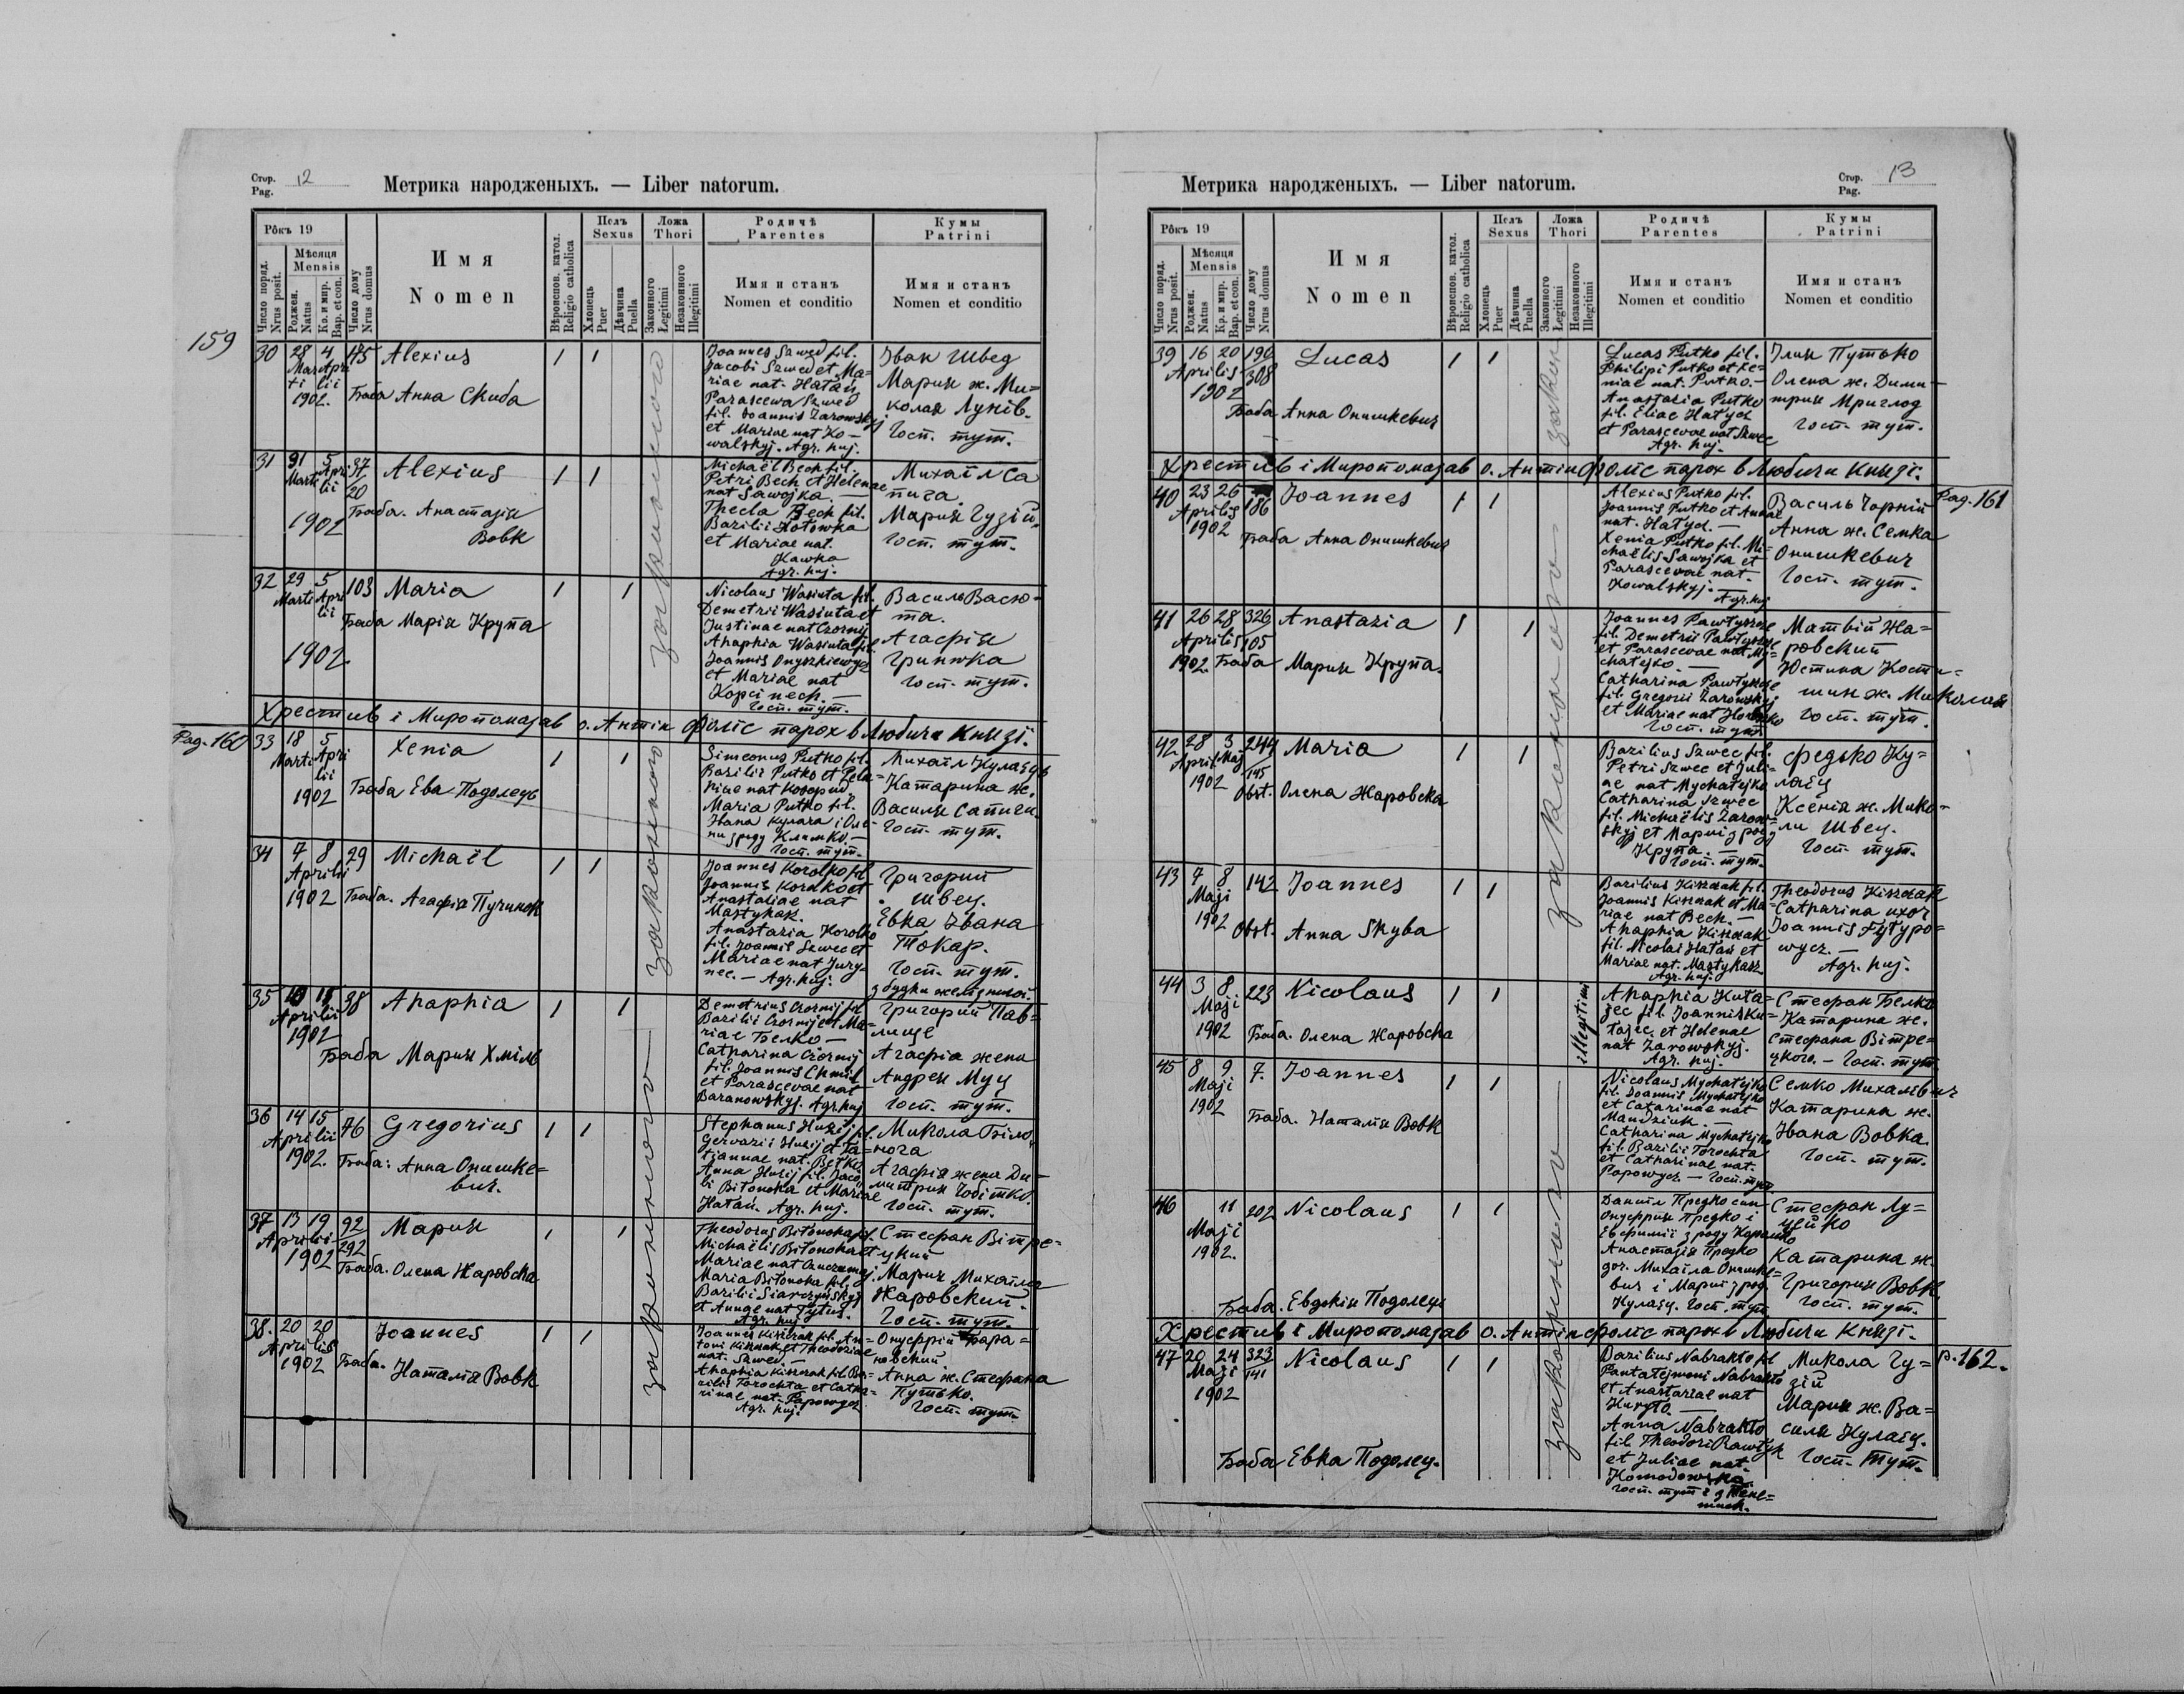 Стор. Pag. 12
Метрика народженыхъ. — Liber natorum.
Рôкъ 19
Число поряд. Nrus posit.
Мѣсяця Mensis
Роджен. Natus
Кр. и мир. Bap. et con.
Число дому Nrus domus
Имя
Nomen
Вѣроиспов. катол. Religio catholica
Полъ Sexus
Хлопець Puer
Дѣвчина Puella
Ложа Thori
Законного Legitimi
Незаконного Illegitimi
Родичѣ
Parentes
Имя и станъ
Nomen et conditio
Кумы
Patrini
Имя и станъ
Nomen et conditio
159
30 28 Marti 4 Aprilii 1902. Alexius
Баба Анна Скиба
Joannes Szwed fil.
Jacobi Szwed et Ma=
riae nat. Hatań
Parascewa Szwed
fil. Joannis Żarowskyj
et Mariae nat Ko-
walskyj. Agr. huj.
Іван Швед
Мария ж. Ми=
колая Лунів.
Госп. тут.
законного
31 31 Marti 5 Aprilii 1902 37 20 Alexius
Баба. Анастазія
Вовк
Michaël Bech fil.
Petri Bech et Helenae
nat Sawojka. —
Thecla Bech fil.
Bazilii Hotowka
et Mariae nat.
Kawka
Agr. huj.
Михаіл Са
піга.
Мария Гузій
Госп. тут.
32 29 Marti 5 Aprilii 1902 103 Maria
Баба Марія Крупа
Nicolaus Wasiuta fil.
Demetrii Wasiuta et
Justinae nat Czornij
Ahaphia Wasiuta fil.
Joannis Onyszkiewycz
et Mariae nat
Kopcinech. —
Госп. тут.
Василь Васю-
та.
Агафія
Гринюка
Госп. тут.
Хрестив і Миропомазав о. Антін Фоліс парох в Любичи Князі.
Pag. 160
33 18 Marti 5 Aprilii 1902 Xenia
Баба Ева Подолець
Simeonus Putko fil.
Bazilii Putko et Pela=
niae nat
Maria Putko fil.
Ивана Кулаґа і Оле-
ни з роду Климко —
Госп. тут.
Михаіл Кулаєць
Катарина ж.
Василя Сапіги.
Госп. тут.
законного
34 7 8 Aprilii 1902 29 Michaël
Баба. Агафія Пучинюк
Joannes Korolko fil
Joannis Korolko et
Anastaziae nat
Mastykasz.
Anastazia Korolko
fil. Joannis Szwec et
Mariae nat Jury-
nec. — Agr. huj.
Григорий
Швец.
Евка Івана
Токар.
Госп. тут.
з будки желізничої.
35 Aprilii 1902 38 Ahaphia
Баба Мария Хміль
Demetrius Czornij fil
Bazilii Czornij et Ma=
riae Белко —
Catharina Czornij
fil. Joannis Chmil
et Parascevae nat
Baranowskyj. Agr. huj
Григорий Пав=
лище
Агафіа жена
Андрея Муц
Госп. тут.
36 14 15 Aprilii 1902. 76 Gregorius
Баба: Анна Онишке=
вич.
Stephanus Huzij fil.
Gervazii Huzij et Ta=
tiannae nat. Betko.
Anna Huzij fil. Jaco-
bi Bitonoha et Mariae
Hatań. Agr. huj.
Микола Біло-
нога
Агафія жена Ди-
митрия Чобітко.
Госп. тут.
37 13 19 Aprilii 1902 92 292 Мария
Баба. Олена Жаровска
законного
Theodorus Bitonoha fil.
Michaëlis Bitonoha et
Mariae nat
Maria Bitonoha fil.
Bazilii Siarczyńskyj
et Annae nat Tytus.
Agr. huj.
Стефан Вітре=
цкий
Мария Михаіла
Жаровский.
Госп. тут.
38. 20 20 Aprilis 1902 Joannes
Баба. Наталія Вовк
Joannes Kiszczak fil. An=
toni Kiszczak et Theodoziae
nat. Szwed. —
Ahaphia Kiszczak fil. Ba=
zilii Torochta et Catha=
rinae nat. Papowycz
Agr. huj.
Онуфрій Бара=
новский.
Анна ж. Стефана
Путько.
Госп. тут.
Метрика народженыхъ. — Liber natorum.
Стор. Pag. 13
Рôкъ 19
Число поряд. Nrus posit.
Мѣсяця Mensis
Роджен. Natus
Кр. и мир. Bap. et con.
Число дому Nrus domus
Имя
Nomen
Вѣроиспов. катол. Religio catholica
Полъ Sexus
Хлопець Puer
Дѣвчина Puella
Ложа Thori
Законного Legitimi
Незаконного Illegitimi
Родичѣ
Parentes
Имя и станъ
Nomen et conditio
Кумы
Patrini
Имя и станъ
Nomen et conditio
39 16 20 Aprilis 1902 190 308 Lucas
Баба Анна Онишкевич
Lucas Putko fil.
Philipi Putko et Xe-
niae nat. Putko. —
Anastazia Putko
fil. Eliae Hatycz
et Parascevae nat Szwec
Agr. huj.
Ілия Путько
Олена ж. Дими-
трия Мриглод
Госп. тут.
Хрестив і Миропомазав о. Антін Фоліс парох в Любичи Князі.
40 23 26 Aprilis 1902 186 Joannes
Баба Анна Онишкевич
Alexius Putko fil.
Joannis Putko et Annae
nat. Hatycz. —
Xenia Putko fil. Mi-
chaëlis Sawojka et
Parascevae nat.
Kowalskyj. —
Agr. huj
Василь Чорній
Анна ж. Семка
Онишкевич
Госп. тут.
Pag. 161
41 26 28 Aprilis 1902. 326 105 Anastazia
Баба Мария Крупа.
законного
Joannes Pawłyszcze
fil. Demetrii Pawłyszcze
et Parascevae nat My=
chatejko. —
Catharina Pawłyszcze
fil. Gregorii Żarowskyj
et Mariae nat
Госп. тут
Матвій Жа=
ровский
Юстина Кости-
шин ж. Миколая
Госп. тут.
42 28 April 3 Maj 1902 244 145 Maria
Obst. Олена Жаровска
Bazilius Szwec fil.
Petri Szwec et Juli=
ae nat Mychatejko
Catharina Szwec
fil. Michaëlis Żarow=
skyj et Мариі з роду
Крупа. —
Госп. тут.
Федько Ку=
лаєц
Ксенія ж. Мико-
ли Швец.
Госп. тут.
43 7 8 Maji 1902 142 Joannes
Obst. Anna Skyba
Bazilius Kiszczak fil.
Joannis Kiszczak et Ma
riae nat Bech. —
Ahaphia Kiszczak
fil. Nicolai Hatań et
Mariae nat. Mastykasz
Agr. huj.
Theodorus Kiszczak
Catharina uxor
Joannis Fytypo=
wycz. —
Agr. huj.
44 3 8 Maji 1902 223 Nicolaus
Баба. Олена Жаровска
illegitimi
Ahaphia Kuta=
jec fil. Joannis Ku=
tajec et Helenae
nat Żarowskyj.
Agr. huj.
Стефан Белко
Катарина ж.
Стефана Вітре-
цкого. — Госп. тут.
45 8 9 Maji 1902 7. Joannes
Баба. Наталія Вовк
Nicolaus Mychatejko
fil. Joannis Mychatejko
et Catarinae nat
Mandziuk. —
Catharina Mychatejko
fil. Bazilii Torochta
et Catharinae nat.
Papowycz. — Госп. тут.
Семко Михалевич
Катарина ж.
Івана Вовка.
Госп. тут.
46 11 Maji 1902. 202 Nicolaus
Баба. Евдокія Подолець
законного
Данило Предко син
Онуфрия Предко і
Евфиміі з роду
Анастазія Предко
доч. Михаіла Онишке=
вич і Мариі з род.
Кулаєц. Госп. тут
Стефан Лу=
цейко
Катарина ж.
Григория Вовк.
Госп. тут.
Хрестив і Миропомазав о. Антін Фоліс парох в Любичи Князі.
47 20 24 Maji 1902 323 141 Nicolaus
Баба Евка Подолец.
Bazilius Nabrakto fil
Pantalejmoni Nabrakto
et Anastaziae nat
Huryto. —
Anna Nabrakto
fil. Theodori Rawłyk
et Juliae nat.
Микола Гу=
зій
Мария ж. Ва=
силя Кулаєц.
Госп. тут.
р. 162.